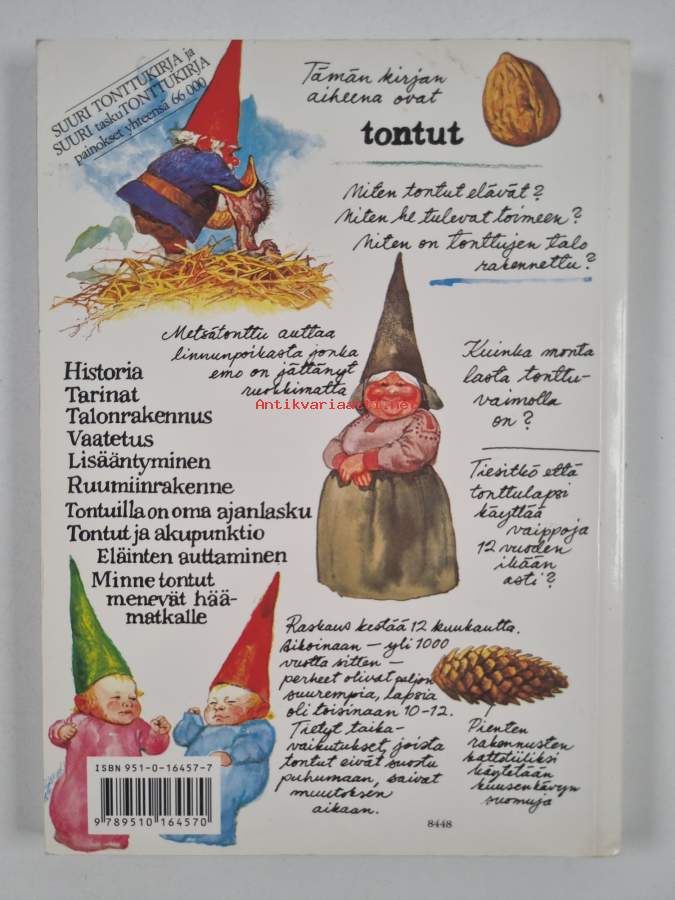 SUURI TONTTUKIRJA ja
SUURI taskuTONTTUKIRJA
painokset yhteensä 66 000
Tämän kirjan
aiheena ovat
tontut
Miten tontut elävät?
Miten he tulevat toimeen?
Miten on tonttujen talo
rakennettu?
Metsätonttu auttaa
linnunpoikasta jonka
emo on jättänyt
ruokkimatta
Antikvariaatti.net
Historia
Tarinat
Talonrakennus
Vaatetus
Lisääntyminen
Ruumiinrakenne
Tontuilla on oma ajanlasku
Tontut ja akupunktio
Eläinten auttaminen
Minne tontut
menevät hää-
matkalle
Kuinka monta
lasta tonttu-
vaimolla
on?
Tiesitkö että
tonttulapsi
käyttää
vaippoja
12 vuoden
ikään
asti?
Raskaus kestää 12 kuukautta.
Aikoinaan – yli 1000
vuotta sitten –
perheet olivat paljon
suurempia, lapsia
oli toisinaan 10-12.
Tietyt taika-
vaikutukset, joista
tontut eivät suostu
puhumaan, saivat
muutoksen
aikaan.
Pienten
rakennusten
kattotiiliksi
käytetään
kuusenkävyn
suomuja
ISBN 951-0-16457-7
9 789510 164570
8448